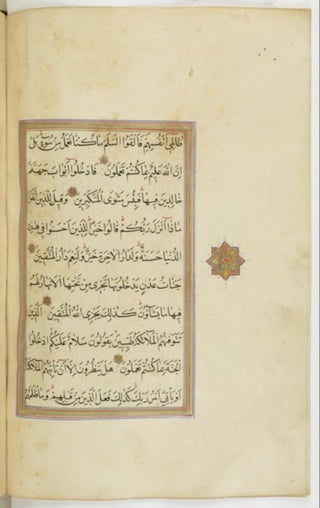 ظَالِمِي أَنْفُسِهِمْ فَأَلْقَوُا السَّلَمَ مَا كُنَّا نَعْمَلُ مِنْ سُوءٍ بَلَىٰ
إِنَّ اللَّهَ عَلِيمٌ بِمَا كُنْتُمْ تَعْمَلُونَ فَادْخُلُوا أَبْوَابَ جَهَنَّمَ
خَالِدِينَ فِيهَا فَلَبِئْسَ مَثْوَى الْمُتَكَبِّرِينَ وَقِيلَ لِلَّذِينَ اتَّقَوْا
مَاذَا أَنْزَلَ رَبُّكُمْ قَالُوا خَيْرًا لِلَّذِينَ أَحْسَنُوا فِي هَٰذِهِ
الدُّنْيَا حَسَنَةٌ وَلَدَارُ الْآخِرَةِ خَيْرٌ وَلَنِعْمَ دَارُ الْمُتَّقِينَ
جَنَّاتُ عَدْنٍ يَدْخُلُونَهَا تَجْرِي مِنْ تَحْتِهَا الْأَنْهَارُ لَهُمْ
فِيهَا مَا يَشَاءُونَ كَذَٰلِكَ يَجْزِي اللَّهُ الْمُتَّقِينَ الَّذِينَ
تَتَوَفَّاهُمُ الْمَلَائِكَةُ طَيِّبِينَ يَقُولُونَ سَلَامٌ عَلَيْكُمُ ادْخُلُوا
الْجَنَّةَ بِمَا كُنْتُمْ تَعْمَلُونَ هَلْ يَنْظُرُونَ إِلَّا أَنْ تَأْتِيَهُمُ الْمَلَائِكَةُ
أَوْ يَأْتِيَ أَمْرُ رَبِّكَ كَذَٰلِكَ فَعَلَ الَّذِينَ مِنْ قَبْلِهِمْ وَمَا ظَلَمَهُمُ